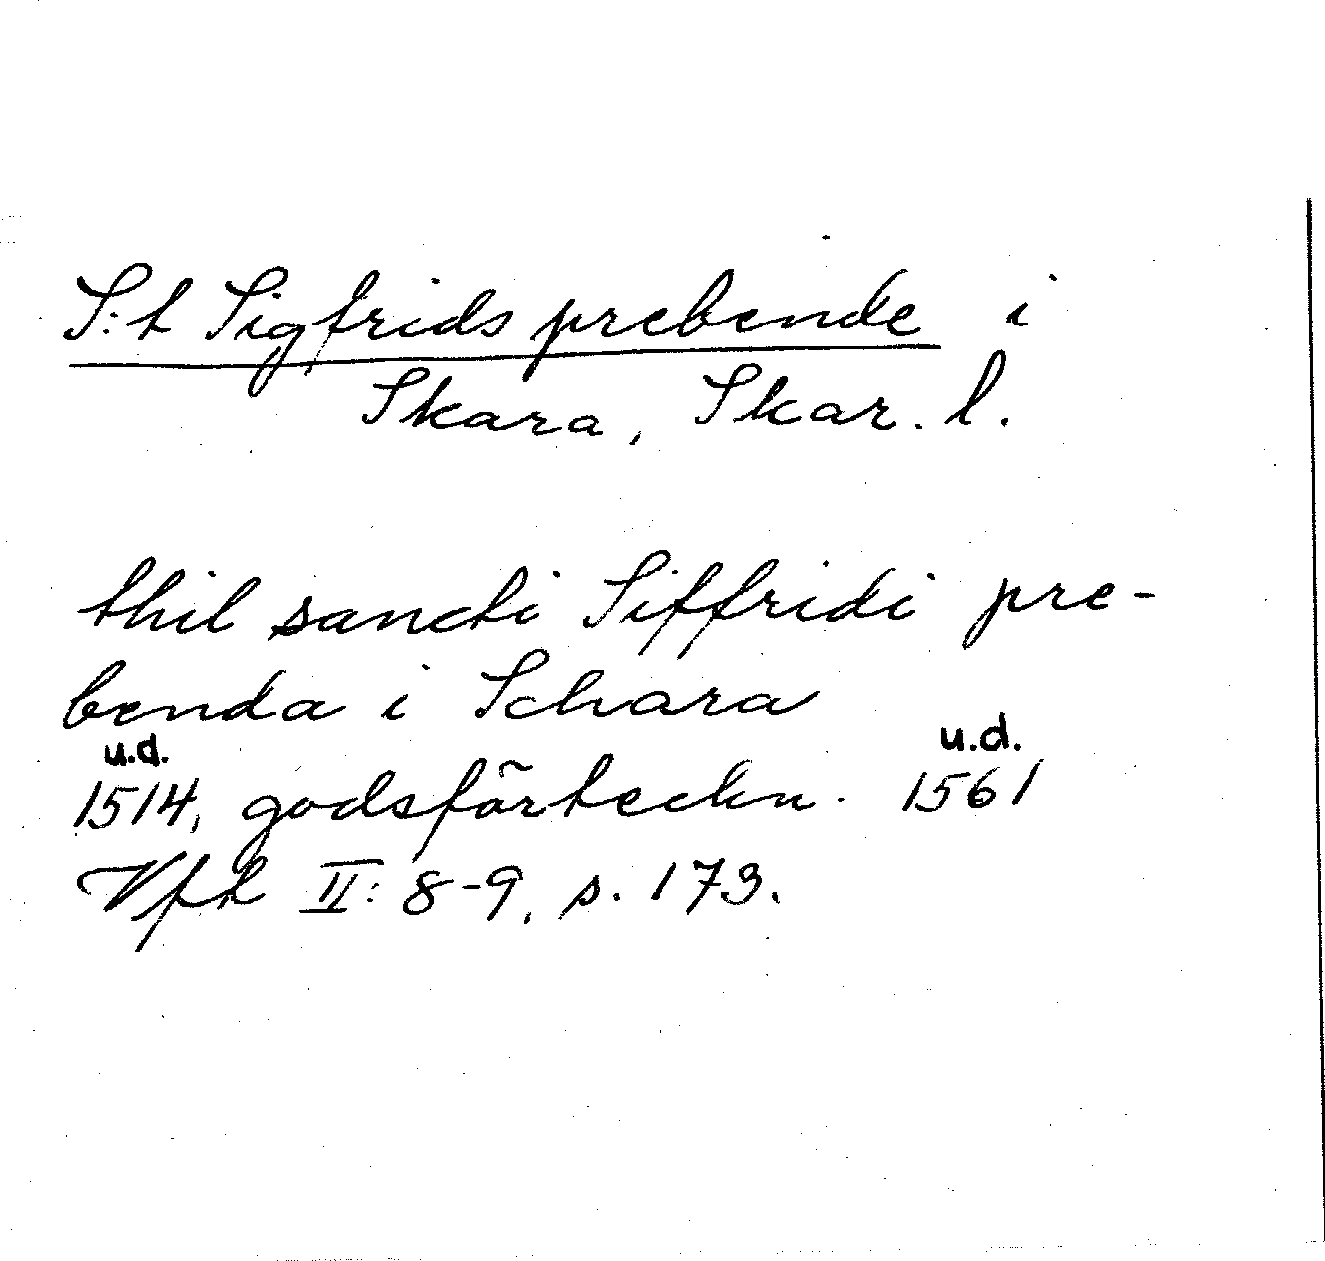 S:t Sigfrids prebende i
Skara, Skar. l.
thil sancti Siffridi pre-
benda i Schara
u.d. u.d.
1514, godsförteckn. 1561
Vft II: 8-9, s. 173.